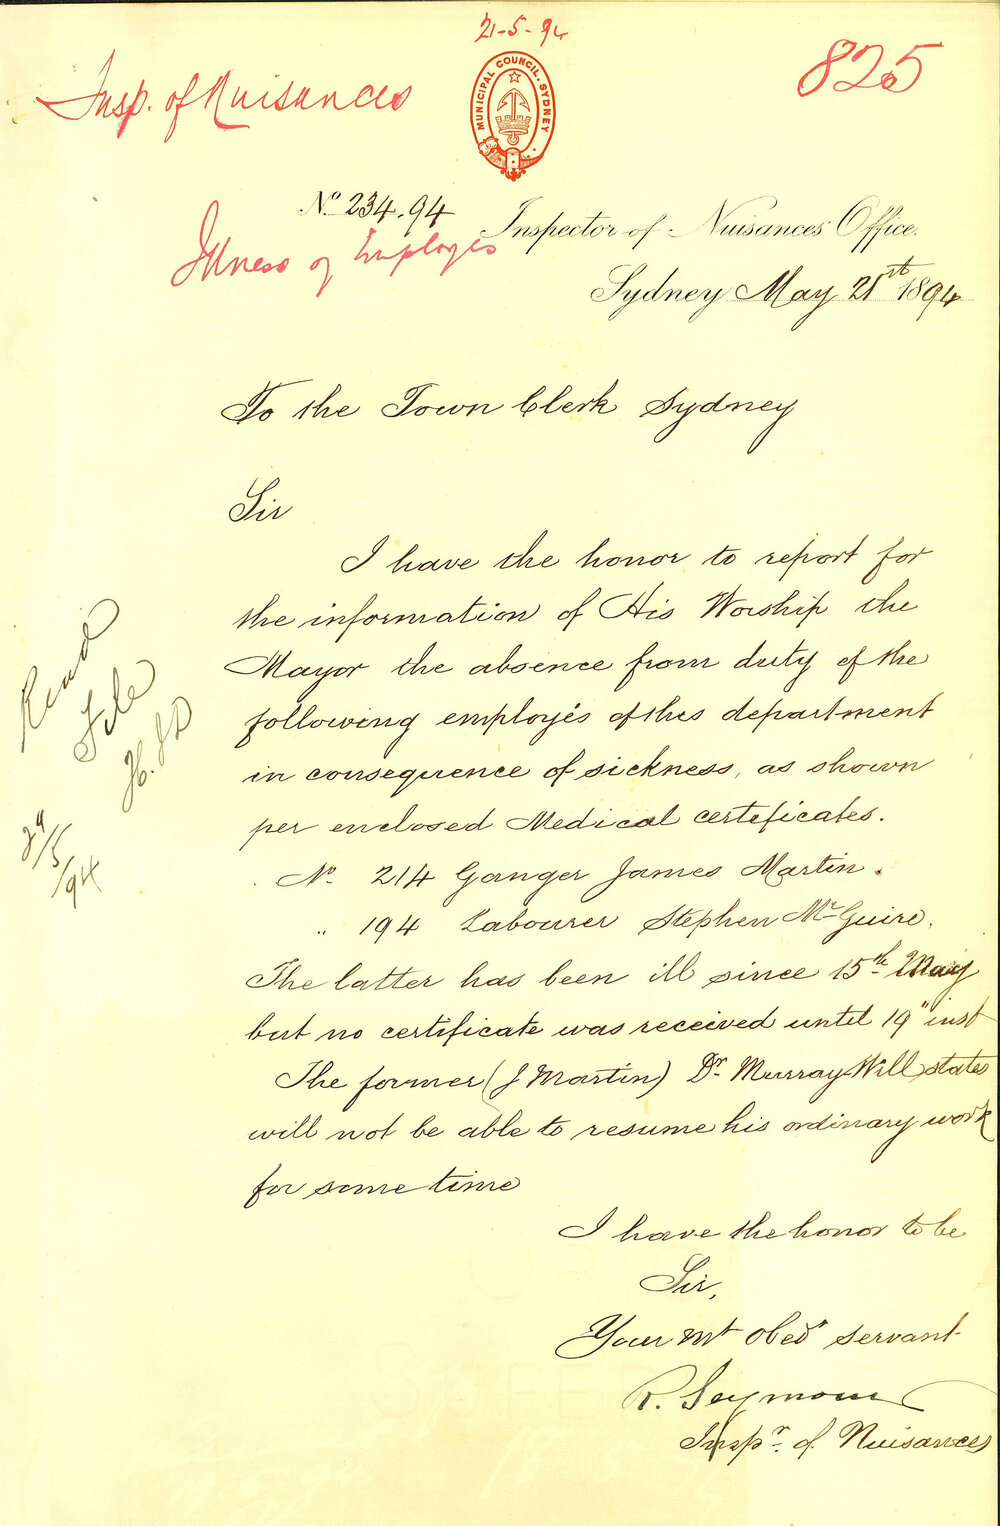 21-5-94
Insp. of Nuisances
825
MUNICIPAL COUNCIL. SYDNEY
No. 234.94
Inspector of Nuisances Office.
Illness of Employés
Sydney May 21st 1894
To the Town Clerk Sydney
Sir
I have the honor to report for
the information of His Worship the
Mayor the absence from duty of the
following employés of this department
in consequence of sickness, as shown
per enclosed Medical certificates.
No. 214 Ganger James Martin.
" 194 Labourer Stephen McGuire.
The latter has been ill since 15th May
but no certificate was received until 19" inst
The former (J Martin) Dr. Murray Will states
will not be able to resume his ordinary work
for some time
I have the honor to be
Sir,
Your Mt Obed't servant
R. Seymour
Inspr. of Nuisances
Read
File
/5
/94